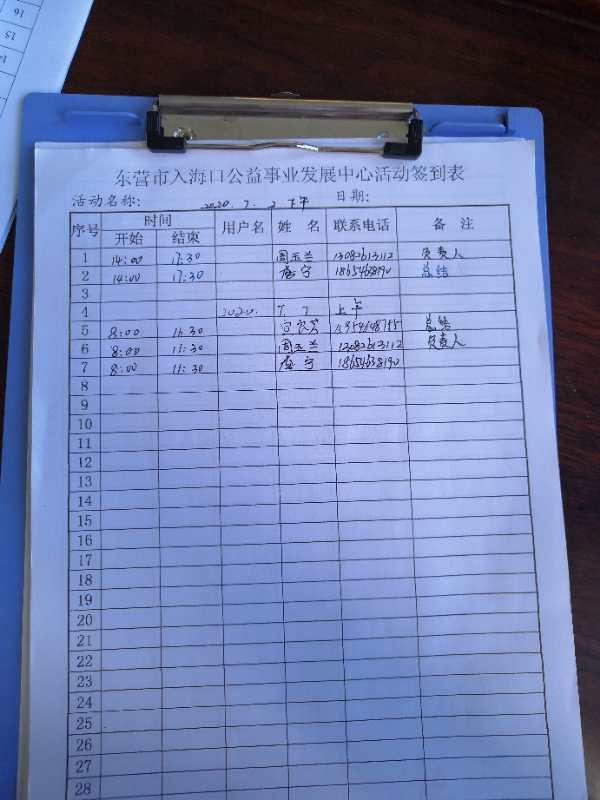 16
15
14
东营市入海口公益事业发展中心活动签到表
活动名称: 2020.7.2 下午 日期:
序号 时间 用户名 姓 名 联系电话 备 注
开始 结束
1 14:00 17:30 周玉兰 13082613112 负责人
2 14:00 17:30 宁 总结
3
4 2020. 7. 上午
5 8:00 11:30 总结
6 8:00 11:30 周玉兰 13082613112 负责人
7 8:00 11:30 宁
8
9
10
11
12
13
14
15
16
17
18
19
20
21
22
23
24
25
26
27
28